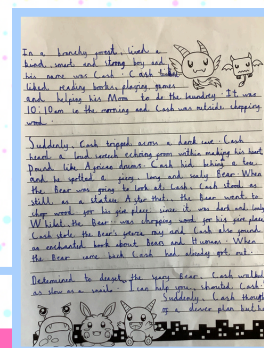 In a branchy forest, lived a
kind, smart and strong boy and
his name was Cash. Cash
liked reading books, playing games
and helping his Mom to do the laundry. It was
10:10am in the morning and Cash was outside chopping
wood.
Suddenly, Cash tripped across a dark cave. Cash
heard a loud screech echoing from within making his heart
Pound like African drums. Cash hid behind a tree
and he spotted a big and scaly Bear. When
the Bear was going to look at Cash, Cash stood as
still as a statue. After that, the Bear went to
chop wood for his fire place, since it was dark and cold.
Whilst the Bear was chopping wood for his fire place,
Cash stole the Bear's and Cash also found
an enchanted book about Bears and Humans. When
the Bear came back Cash had already got out.
Determined to defeat the scary Bear, Cash walked
as slow as a snail. I can help you, shouted Cash.
Suddenly, Cash though
of a clever plan but he